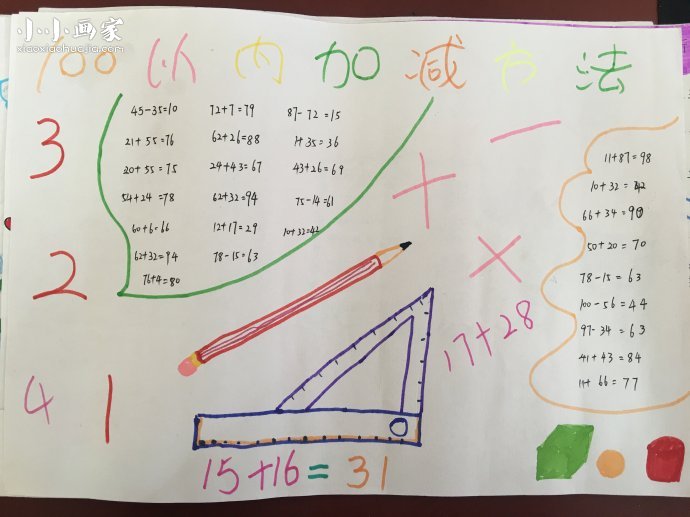 小小画家
xiaoxiaohuajia.com
100 以内加减方法
3
45-35=10 72+7=79 87-72=15
21+55=76 62+26=88 1+35=36
20+55=75 24+43=67 43+26=69
54+24=78 62+32=94 75-14=61
60+6=66 12+17=29 10+32=42
62+32=94 78-15=63
76+4=80
+ - ×
11+87=98
10+32=42
66+34=90
50+20=70
78-15=63
100-56=44
97-34=63
41+43=84
11+66=77
2
4 1
17+28
15+16=31